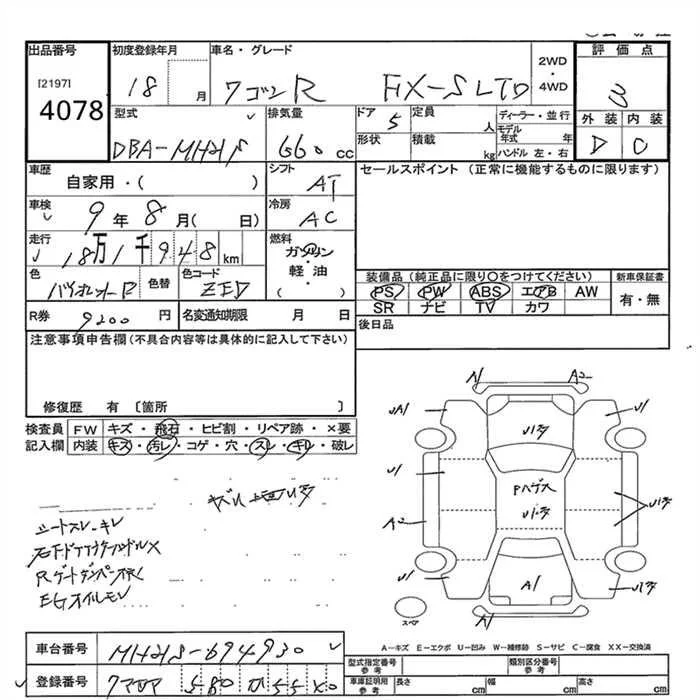 出品番号 初度登録年月 車名・グレード 2WD・4WD 評価点
[2197]
4078
18 月 ワゴンR FX-S LTD 3
型式 排気量 ドア 定員 ディーラー・並行 外装 内装
DBA-MH21S 660 cc 5 人 モデル年式 年 D C
形状 積載 kg ハンドル 左・右
車歴 シフト セールスポイント (正常に機能するものに限ります)
自家用・( ) AT
車検 冷房
9年 8月( 日) AC
走行 燃料
18万1千948km ガソリン・軽油 ( )
色 色替 色コード 装備品(純正品に限り○をつけてください) 新車保証書
バイオレットR ZED PS PW ABS エアB AW 有・無
SR ナビ TV カワ
R券 9200 円 名変通知期限 月 日 後日品
注意事項申告欄(不具合内容等は具体的に記入して下さい)
修復歴 有 〔箇所 〕
検査員 FW キズ・飛石・ヒビ割・リペア跡・×要
記入欄 内装 キズ・汚レ・コゲ・穴・スレ・キレ・破レ
シートスレ・キレ
EGオイルモレ
A1 A2
UA1 U1
Pハゲス
U1
A2
U1
A1
A1
スペア
A-キズ E-エクボ U-凹み W-補修跡 S-サビ C-腐食 XX-交換済
車台番号 MH21S-694930
型式指定番号 参考 類別区分番号 参考
登録番号 580 55
車庫証明用 参考 長さ cm 幅 cm 高さ cm